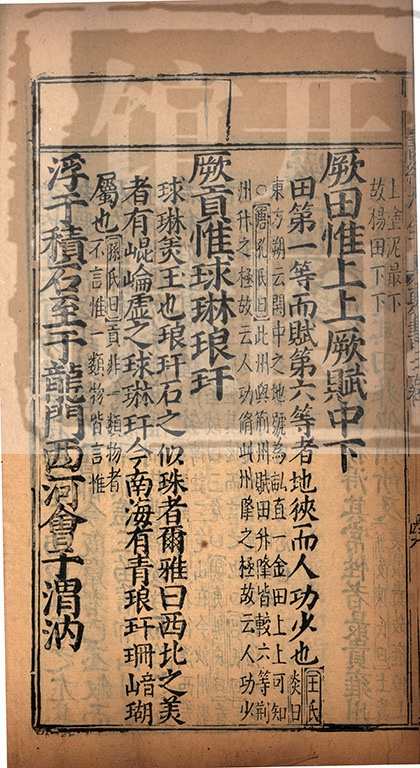 上塗泥最下
故楊田下下
厥田惟上上厥賦中下
田第一等而賦第六等者地狹而人功少也王氏
炎曰
東方朔云関中之地號為畝直一金田上上可知
○唐孔氏曰此州與荊州賦田升降皆較六等荊
州升之極故云人功脩此州降之極故云人功少
厥貢惟球琳琅玕
球琳美玉也琅玕石之似珠者爾雅曰西北之美
者有崐崘虛之球琳玕今南海有青琅玕珊瑚
屬也
孫氏曰貢非一類物者
不言惟一類物皆言惟
浮于積石至于龍門西河會于渭汭